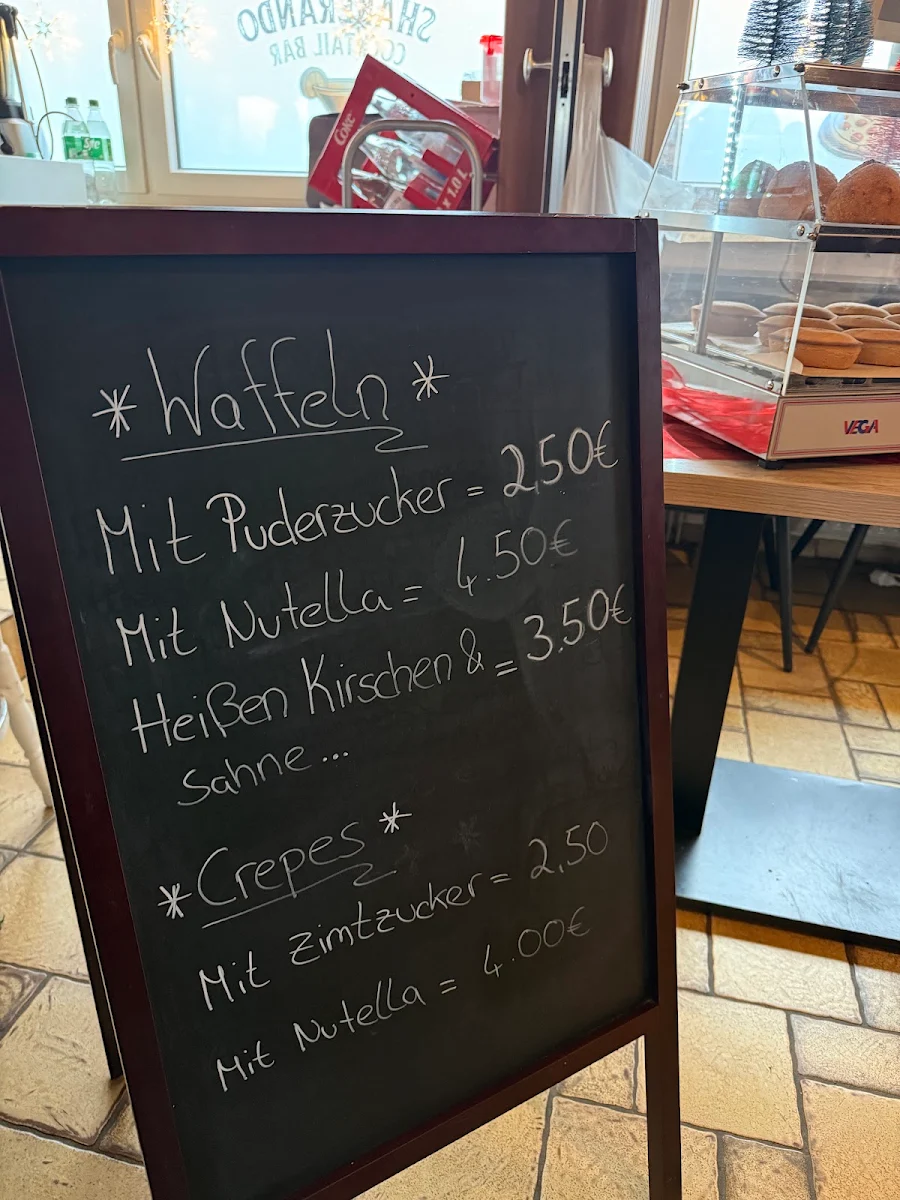 SHAKERANDO
COCKTAIL BAR
Coke
x 1.0 L
VEGA
*Waffeln*
Mit Puderzucker = 2,50€
Mit Nutella = 4.50€
Heißen Kirschen & = 3.50€
Sahne...
*Crepes*
Mit Zimtzucker = 2,50
Mit Nutella = 4.00€